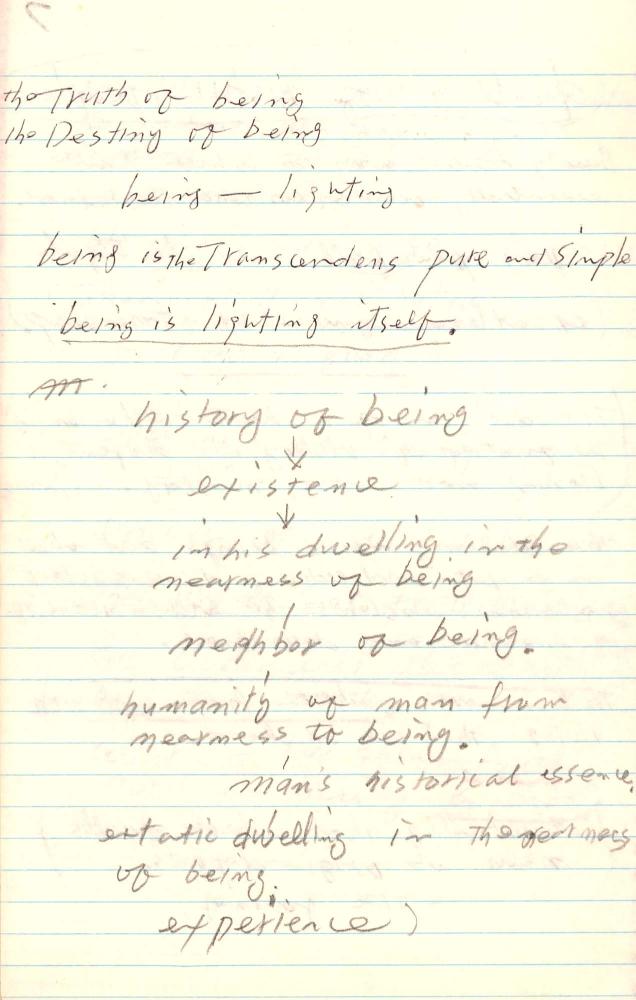 the Truth of being
the Destiny of being
being — lighting
being is the Transcendens pure and Simple
being is lighting itself.
history of being
↓
existence
↓
in his dwelling in the
nearness of being
neighbor of being.
humanity of man from
nearness to being.
man's historical essence.
extatic dwelling in the nearness
of being.
experience)